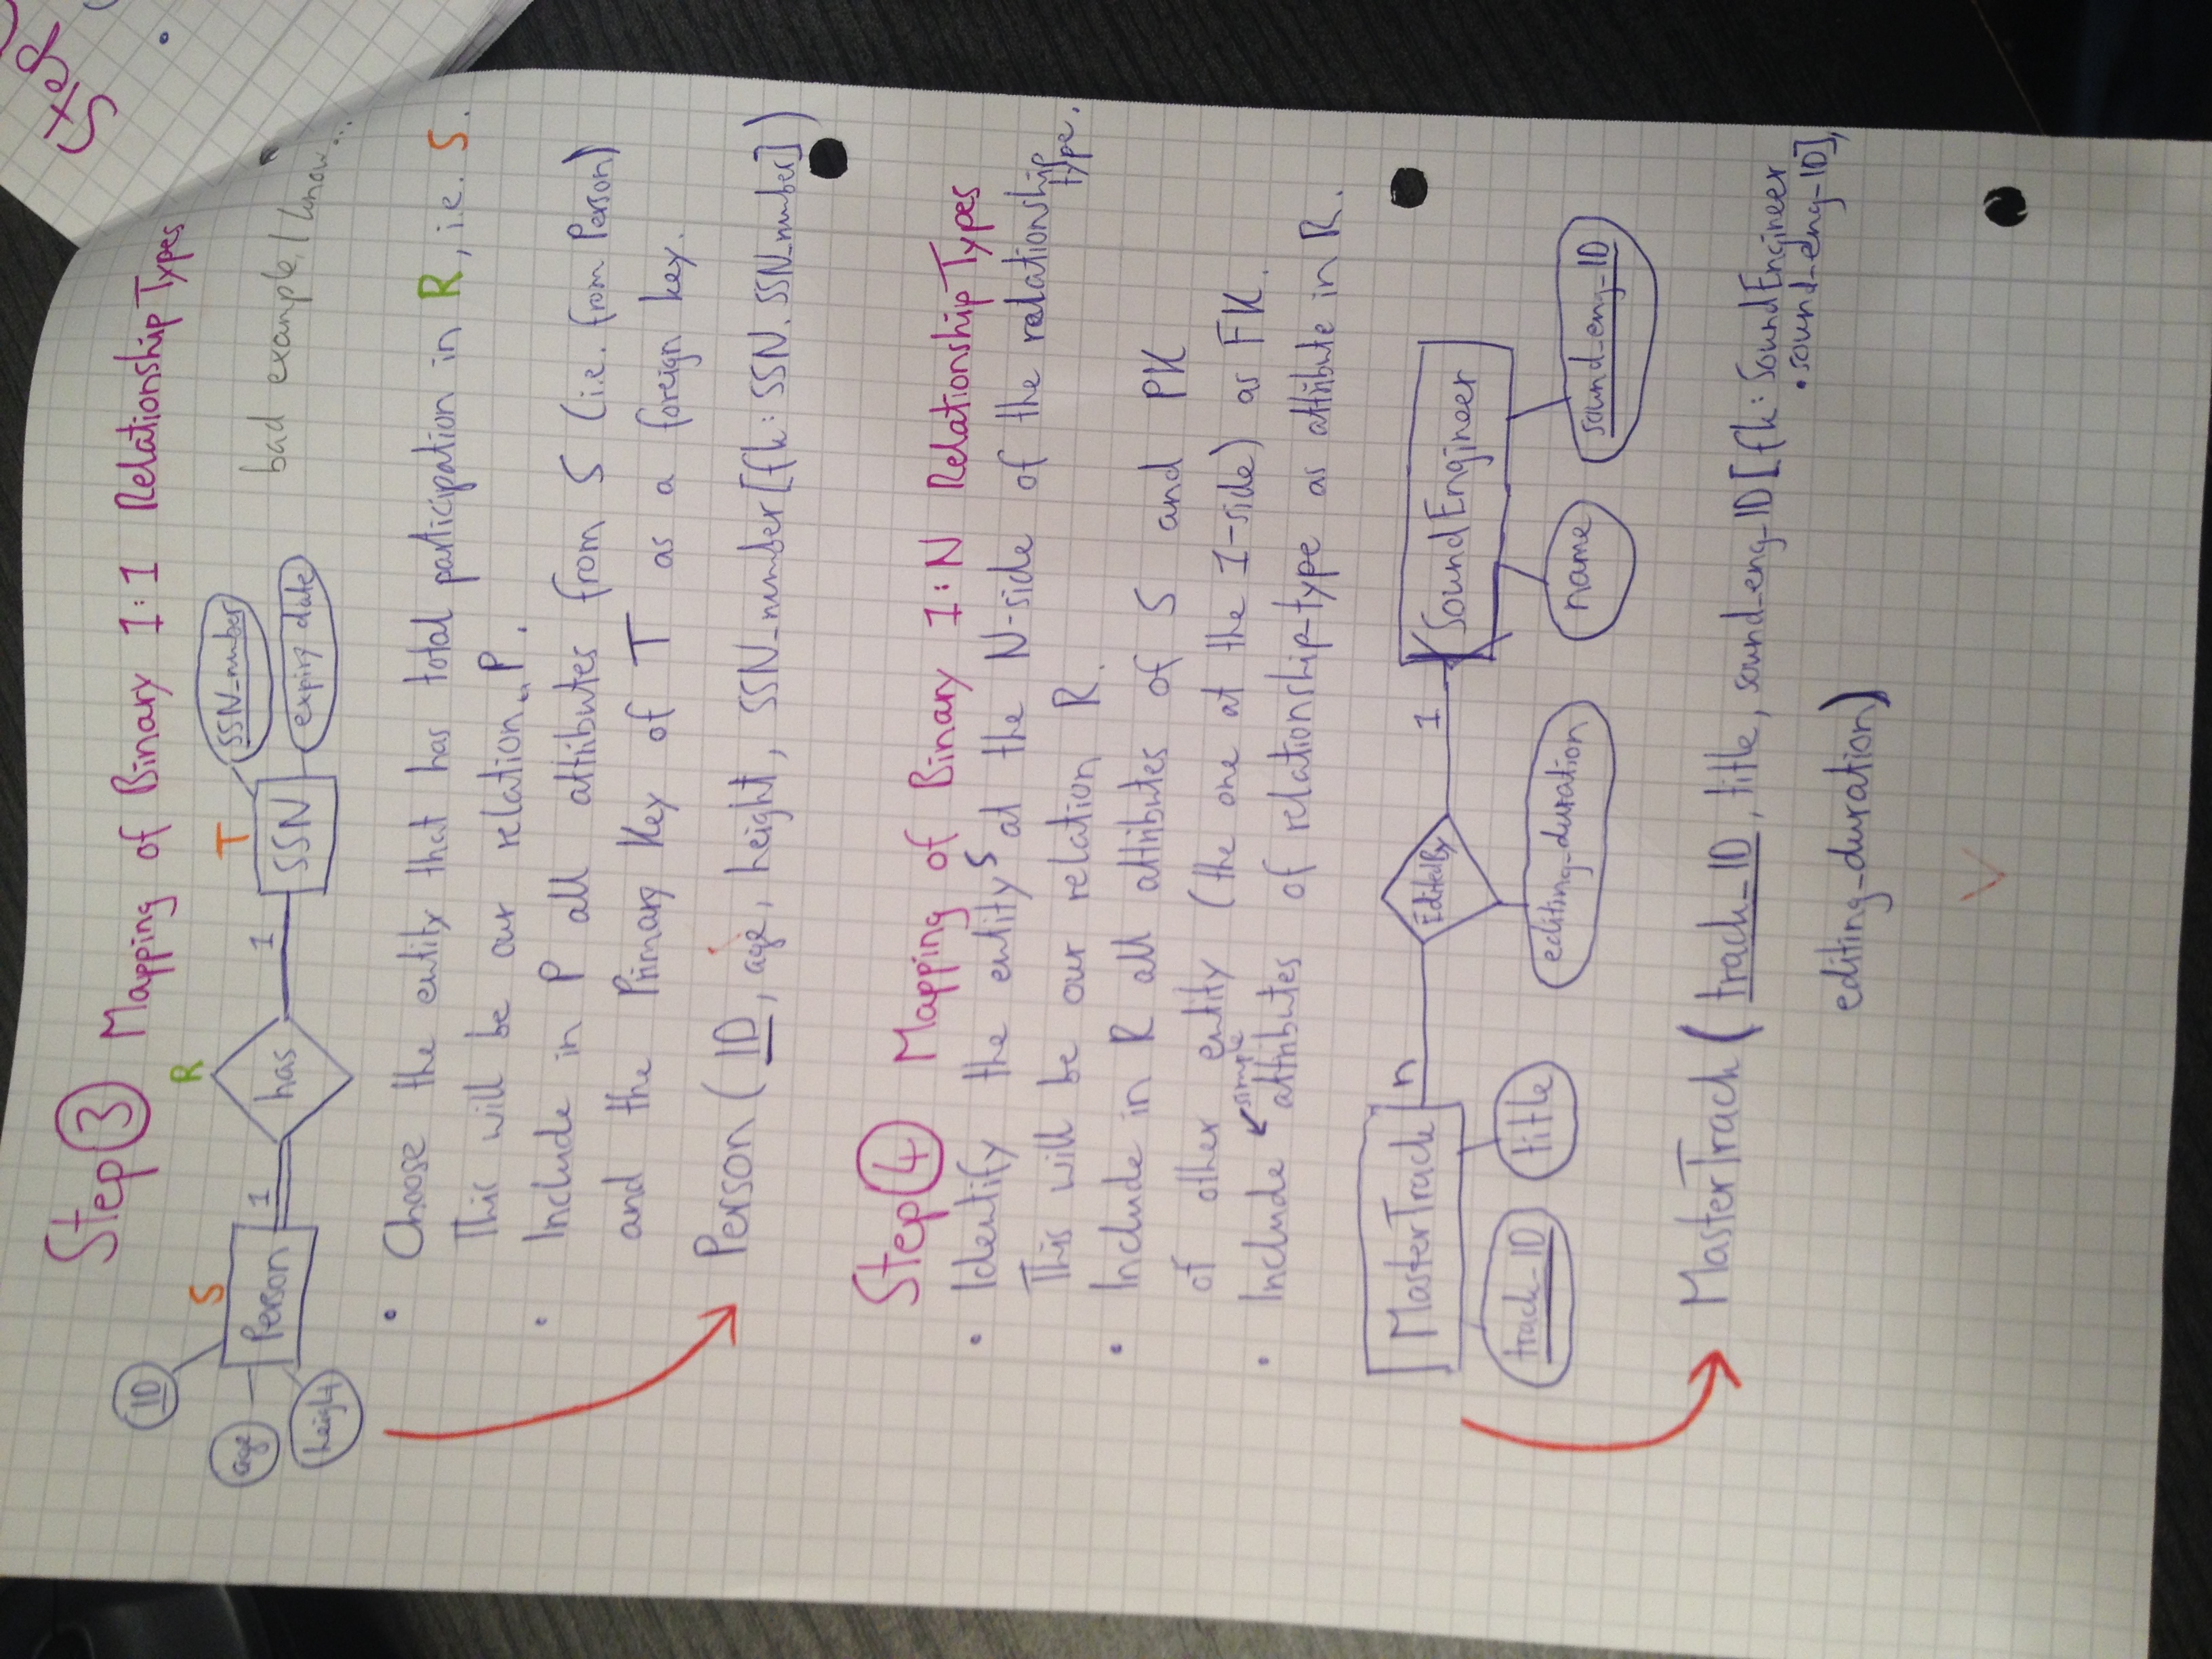 Step 3 Mapping of Binary 1:1 Relationship Types
ID
S
R
T
SSN_number
age
Person
1
has
1
SSN
height
expiry date
bad example, I know...
• Choose the entity that has total participation in R, i.e. S.
This will be our relation P.
• Include in P all attributes from S (i.e. from Person)
and the Primary Key of T as a foreign key.
Person ( ID, age, height, SSN_number [fk: SSN. SSN_number] )
Step 4 Mapping of Binary 1:N Relationship Types
• Identify the entity S at the N-side of the relationship
type.
This will be our relation R.
• Include in R all attributes of S and PK
of other entity (the one at the 1-side) as FK.
simple
• Include attributes of relationship-type as attribute in R.
MasterTrack
n
EditedBy
1
SoundEngineer
track_ID
title
editing_duration
name
sound_eng_ID
MasterTrack ( track_ID, title, sound_eng_ID [fk: SoundEngineer
.sound_eng_ID],
editing_duration)
Step